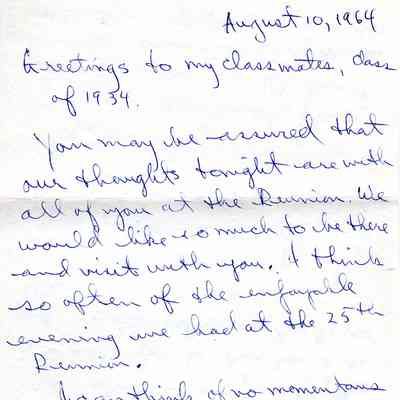 August 10, 1964
Greetings to my classmates, class
of 1934.
You may be assured that
our thoughts tonight are with
all of you at the Reunion. We
would like so much to be there
and visit with you. I think
so often of the enjoyable
evening we had at the 25th
Reunion.
I can think of no momentous